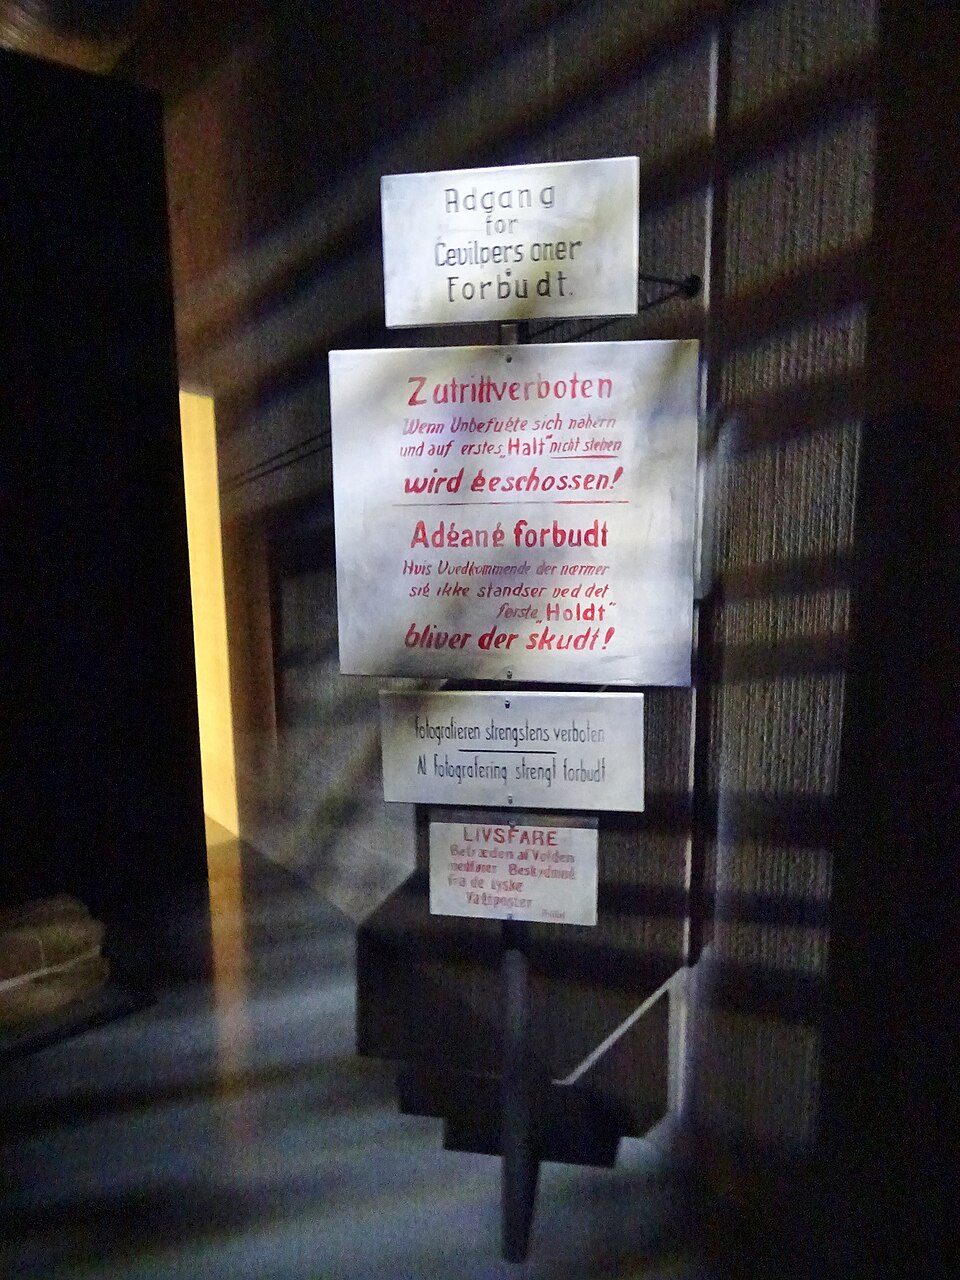 Adgang
for
Cevilpersoner
Forbudt.
Zutrittverboten
Wenn Unbefugte sich nähern
und auf erstes „Halt“ nicht stehen
wird geschossen!
Adgang forbudt
Hvis Uvedkommende der nærmer
sig ikke standser ved det
første „Holdt“
bliver der skudt!
Fotografieren strengstens verboten
Al Fotografering strengt forbudt
LIVSFARE
Betræden af Volden
medfører Beskydning
fra de tyske
Vagtposter